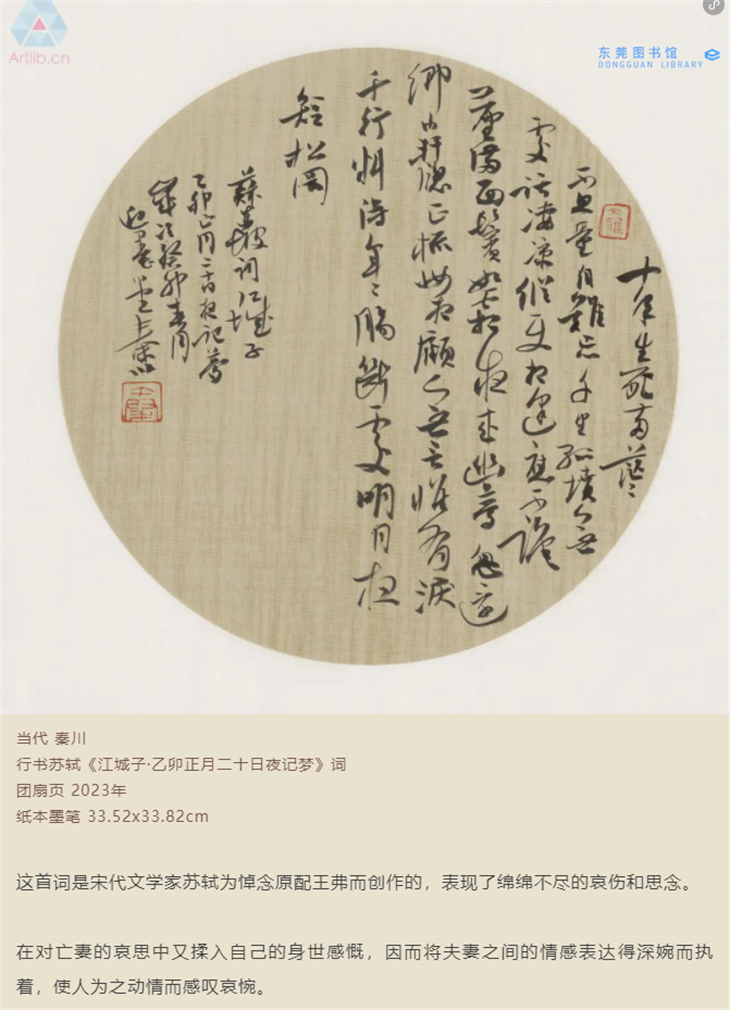 Artlib.cn
东莞图书馆
DONGGUAN LIBRARY
十年生死兩茫〻
不思量自難忘千里孤墳無
處話凄凉縱使相逢應不識
塵滿面鬢如霜夜來幽夢忽還
鄉小軒窗正梳妝相顧無言惟有淚
千行料得年〻腸斷處明月夜
短松岡
蘇東坡詞江城子
乙卯正月二十日夜記夢
歲次癸卯春月
堂秦川
当代 秦川
行书苏轼《江城子·乙卯正月二十日夜记梦》词
团扇页 2023年
纸本墨笔 33.52x33.82cm
这首词是宋代文学家苏轼为悼念原配王弗而创作的，表现了绵绵不尽的哀伤和思念。
在对亡妻的哀思中又揉入自己的身世感慨，因而将夫妻之间的情感表达得深婉而执
着，使人为之动情而感叹哀惋。